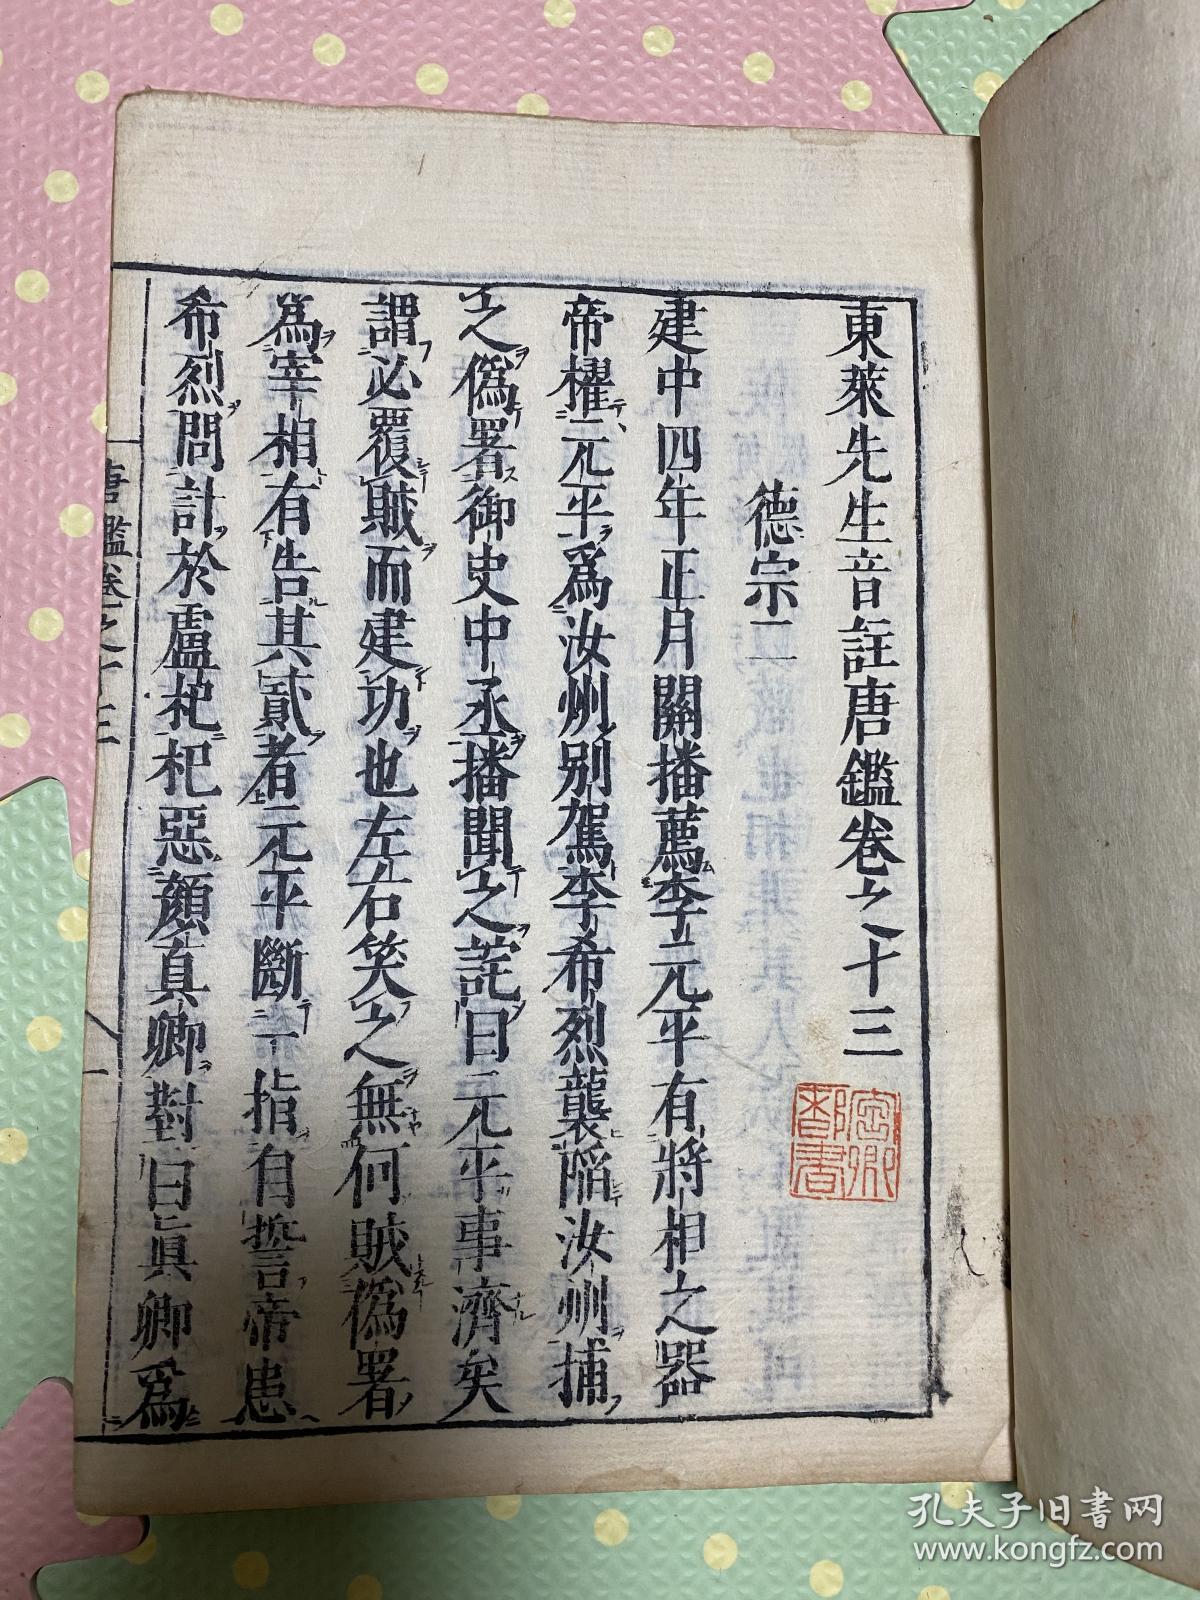 東萊先生音註唐鑑卷之十三
德宗二
建中四年正月關播薦李元平有將相之器
帝櫂元平爲汝州別駕李希烈襲陷汝州捕
之僞署御史中丞播聞之詫曰元平事濟矣
謂必覆賊而建功也左右笑之無何賊僞署
爲宰相有告其貳者元平斷一指自誓帝患
希烈問計於盧杞杞惡顏真卿對曰眞卿爲
唐鑑卷之十三
一
孔夫子旧书网
www.kongfz.com